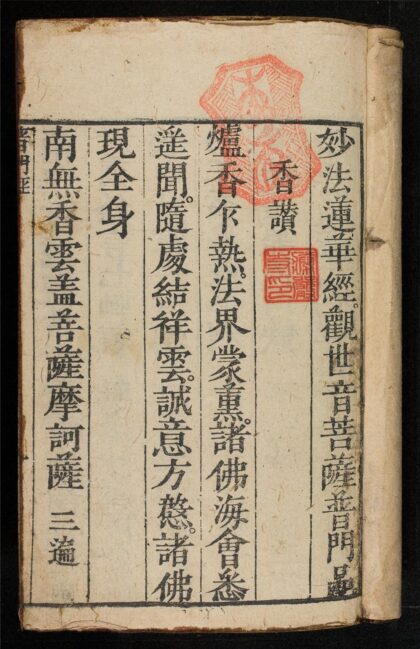 妙法蓮華經。觀世音菩薩普門品
香讚
爐香乍熱。法界蒙薰。諸佛海會悉
遙聞。隨處結祥雲。誠意方慇。諸佛
現全身
南無香雲盖菩薩摩訶薩 三遍
普門經